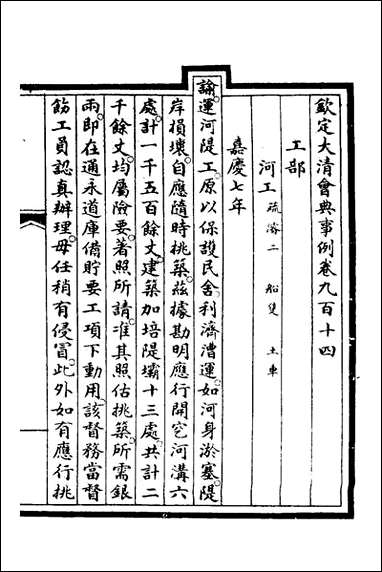 欽定大清會典事例卷九百十四
工部
河工疏濬二 船隻 土車
嘉慶七年
諭。運河隄工。原以保護民舍。利濟漕運。如河身淤塞。隄
岸損壞。自應隨時挑築。茲據勘明應行開空河溝六
處。計一千五百餘丈。建築加培隄壩十三處。共計二
千餘丈。均屬險要。著照所請。准其照估挑築。所需銀
兩。即在通永道庫備貯要工項下動用。該督務當督
飭工員認真辦理。毋任稍有侵冒。此外如有應行挑